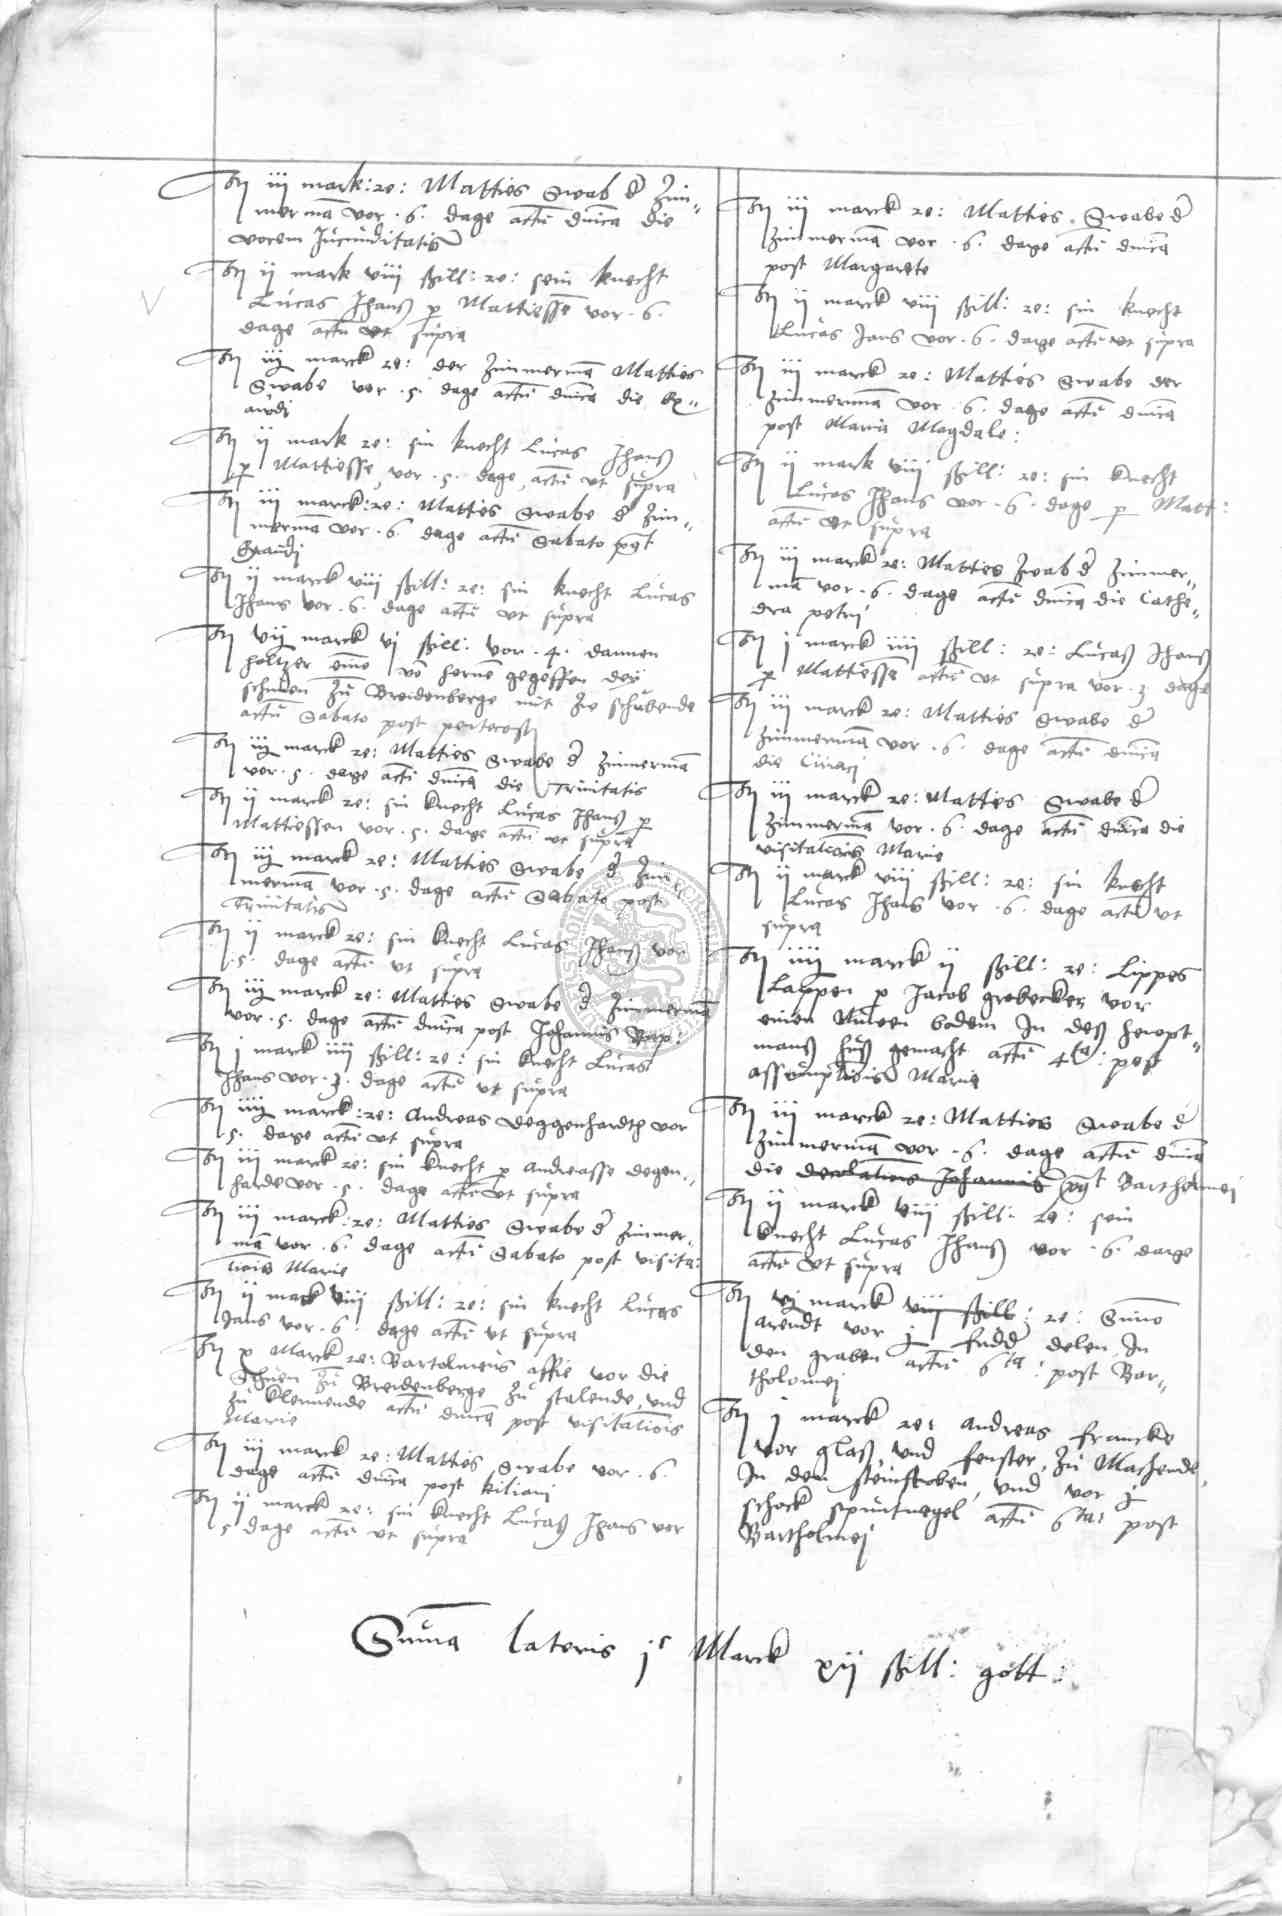 Itm iij mark : re : Matties Swab d' Zim-
merma vor . 6 . dage actu dnica die
vocem Jucunditatis
Itm ij mark viij ßill : re : sein knecht
Lucas Jhanß p Mattiesse vor . 6 .
dage actu ut supra
Itm iij marck re : der Zimmerma Matties
Swabe vor . 5 . dage actu dnica die Ex-
audi
Itm ij mark re : sin knecht Lucas Jhanß
p Mattiesse, vor . 5 . dage, actu ut supra
Itm iij marck : re : Matties Swabe d' Zim-
merma vor . 6 . dage actu Sabato post
Exaudi
Itm ij marck viij ßill : re : sin knecht Lucas
Jhans vor . 6 . dage actu ut supra
Itm vij marck vj ßill : vor . 4 . dannen
holtzer vo hernn gegossen
schulen Zu Breidenberge mit
actu Sabato post pentecost
Itm iij marck re : Matties Swabe d' Zimmerma
vor . 5 . dage actu dnica die Trinitatis
Itm ij marck re : sin knecht Lucas Jhanß p
Mattiessen vor . 5 . dage actu ut supra
Itm iij marck re : Matties Swabe d' Zim
merma vor . 5 . dage actu Sabato post
Trinitatis
Itm ij marck re : sin knecht Lucas Jhanß vor
. 5 . dage actu ut supra
Itm iij marck re : Matties Swabe d' Zimmerma
vor . 5 . dage actu dnica post Johannis Bap :
Itm j marck iiij ßill : re : sin knecht Lucas
Jhans vor . 3 . dage actu ut supra
Itm iiij marck : re : Andreas Deggenhardth vor
. 5 . dage actu ut supra
Itm iij marck re : sin knecht p Andreasse degen-
harde vor . 5 . dage actu ut supra
Itm iij marck : re : Matties Swabe d' Zimmer-
ma vor . 6 . dage actu Sabato post visita :
tiois Marie
Itm ij mack viij ßill : re : sin knecht Lucas
Jans vor . 6 . dage actu ut supra
Itm x Marck re : Bartolmeus affie vor die
Schuen Zu Breidenberge Zu stalende, und
Zu klemende actu dnica post visitatiois
Marie
Itm iij marck re : Matties Swabe vor . 6 .
dage actu dnica post kiliani
Itm ij marck re : sin knecht Lucaß Jhans vor
. 5 dage actu ut supra
Itm iij marck re : Matties . Swabe d'
Zimmerma vor . 6 . dage actu dnica
post Margarete
Itm ij marck viij ßill : re : sin knecht
Lucas Jans vor . 6 . dage actu ut supra
Itm iij marck re : Matties Swabe der
Zimmerma vor . 6 . dage actu dnica
post Maria Magdale :
Itm ij mark viij ßill : re : sin knecht
Lucas Jhans vor . 6 . dage p Matt :
actu ut supra
Itm iij marck re : Matties Zwab d' Zimmer-
ma vor . 6 . dage actu dnica die Cathe-
dra petri
Itm j marck iiij ßill : re : Lucaß Jhanß
p Mattiesse actu ut supra vor . 3 dage
Itm iij marck re : Matties Swabe d'
Zimmerma vor . 6 . dage actu dnica
die Ciriaci
Itm iij marck re : Matties Swabe d'
Zimmerma vor . 6 . dage actu dnica die
visitatiois Marie
Itm ij marck viij ßill : re : sin knecht
Lucas Jhans vor . 6 . dage actu ut
supra
Itm iiij marck ij ßill : re : Lippes
Lappen p Jacob grobecker vor
einen nuwen bodem In deß hewpt-
manß huß gemacht actu 4ta : post
assumptiois Marie
Itm iij marck re : Matties Swabe d'
Zimmerma vor . 6 . dage actu dnica
die decolatiois Johannis post Bartholmei
Itm ij marck viij ßill : re : sein
knecht Lucas Jhanß vor . 6 . dage
actu ut supra
Itm vj marck viij ßill : re : Simo
Arendt vor j fudd delen In
den graben actu 6ta : post Bar-
tholomej
Itm j marck re : Andreas francke
vor glaß, und fenster, Zu Machende,
In der steinstoben, und vor j
schock spuntnegel actu 6ta : post
Bartholmej
Suma lateris jc Marck xij ßill : gott :